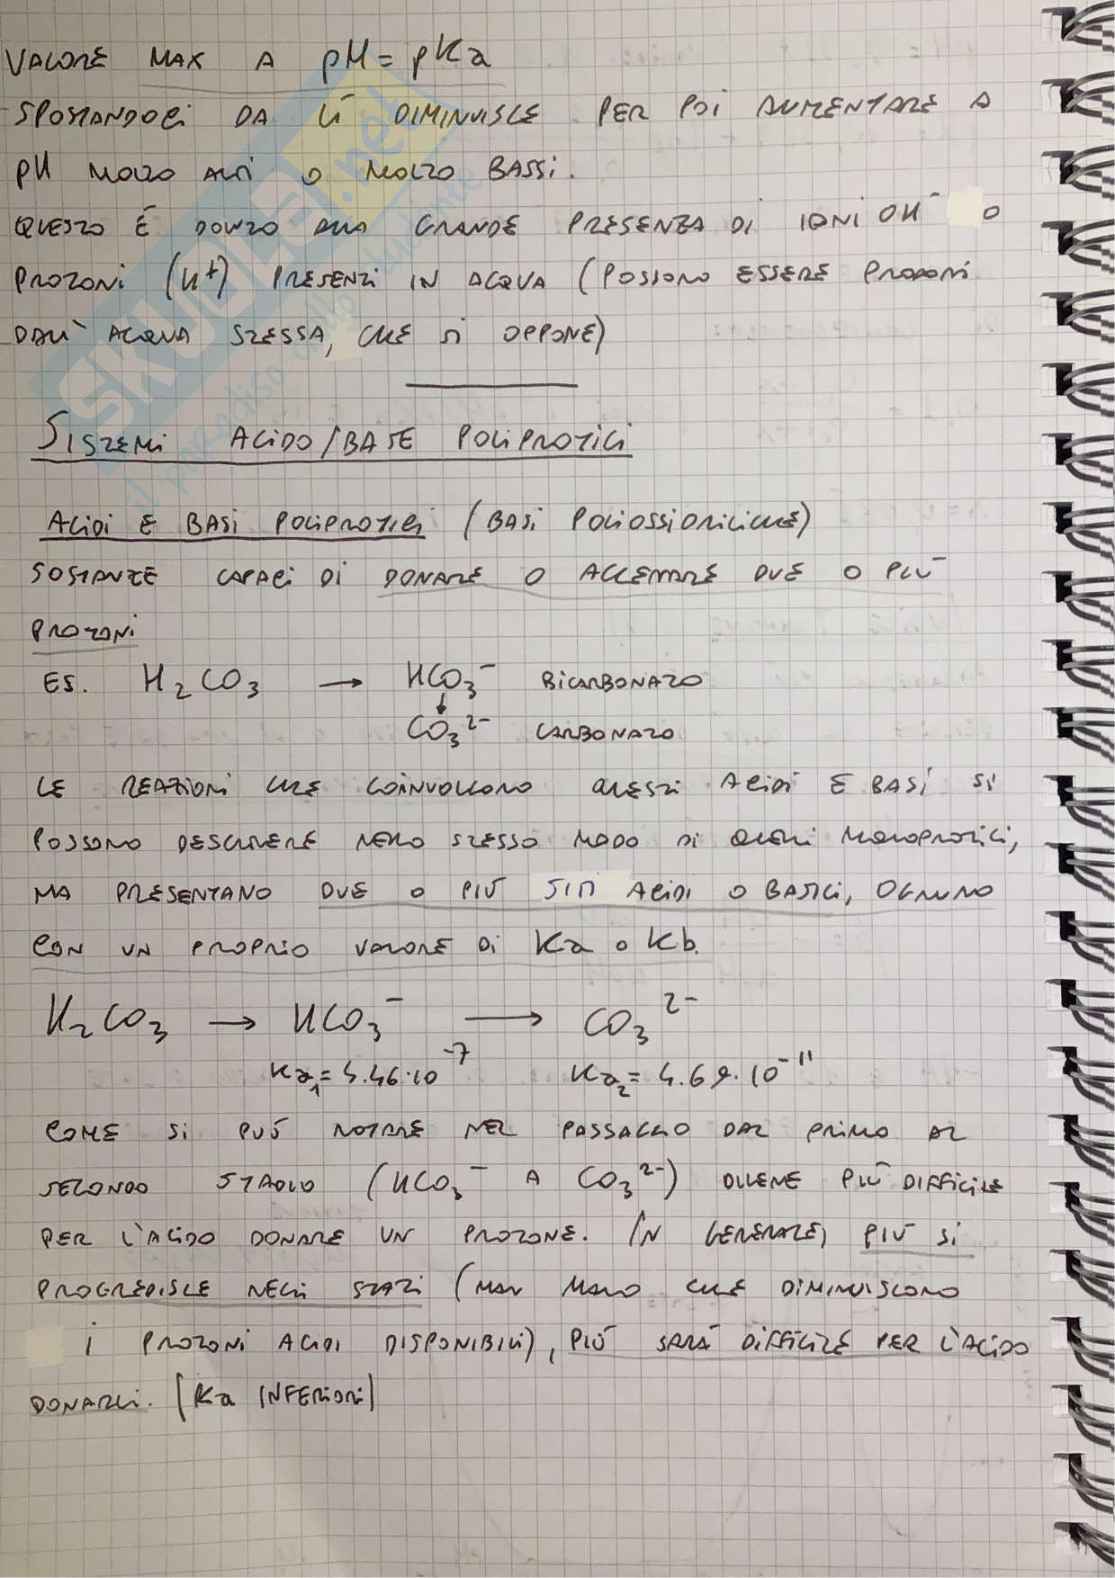 VALORE MAX A pH = pKa
SPOSTANDOCI DA LÌ DIMINUISCE PER POI AUMENTARE A
pH MOLTO ALTI O MOLTO BASSI.
QUESTO È DOVUTO ALLA GRANDE PRESENZA DI IONI OH⁻ O
PROTONI (H⁺) PRESENTI IN ACQUA (POSSONO ESSERE PRODOTTI
DALL'ACQUA STESSA, CHE SI OPPONE)
SISTEMI ACIDO/BASE POLIPROTICI
ACIDI E BASI POLIPROTICI (BASI POLIOSSIDRILICHE)
SOSTANZE CAPACI DI DONARE O ACCETTARE DUE O PIÙ
PROTONI
ES. H₂CO₃ → HCO₃⁻ BICARBONATO
↓
CO₃²⁻ CARBONATO
LE REAZIONI CHE COINVOLGONO QUESTI ACIDI E BASI SI
POSSONO DESCRIVERE NELLO STESSO MODO DI QUELLI MONOPROTICI,
MA PRESENTANO DUE O PIÙ SITI ACIDI O BASICI, OGNUNO
CON UN PROPRIO VALORE DI Ka o Kb.
H₂CO₃ → HCO₃⁻ → CO₃²⁻
Ka₁ = 4.46·10⁻⁷ Ka₂ = 4.69·10⁻¹¹
COME SI PUÒ NOTARE NEL PASSAGGIO DAL PRIMO AL
SECONDO STADIO (HCO₃⁻ A CO₃²⁻) DIVIENE PIÙ DIFFICILE
PER L'ACIDO DONARE UN PROTONE. IN GENERALE, PIÙ SI
PROGREDISCE NEGLI STATI (MAN MANO CHE DIMINUISCONO
I PROTONI ACIDI DISPONIBILI), PIÙ SARÀ DIFFICILE PER L'ACIDO
DONARLI. (Ka INFERIORI)
SKUOLA.net